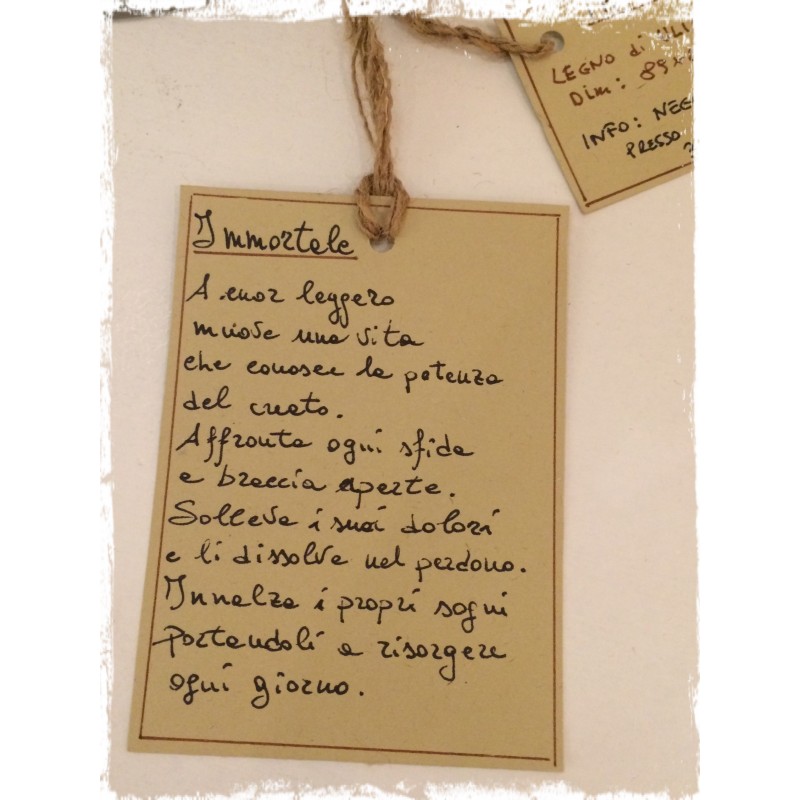 Immortale
A cuor leggero
muove una vita
che conosce la potenza
del creato.
Affronta ogni sfida
a braccia aperte.
Solleva i suoi dolori
e li dissolve nel perdono.
Innalza i propri sogni
portandoli a risorgere
ogni giorno.
LEGNO di ULI
Dim: 89x
INFO: NEG
PRESSO